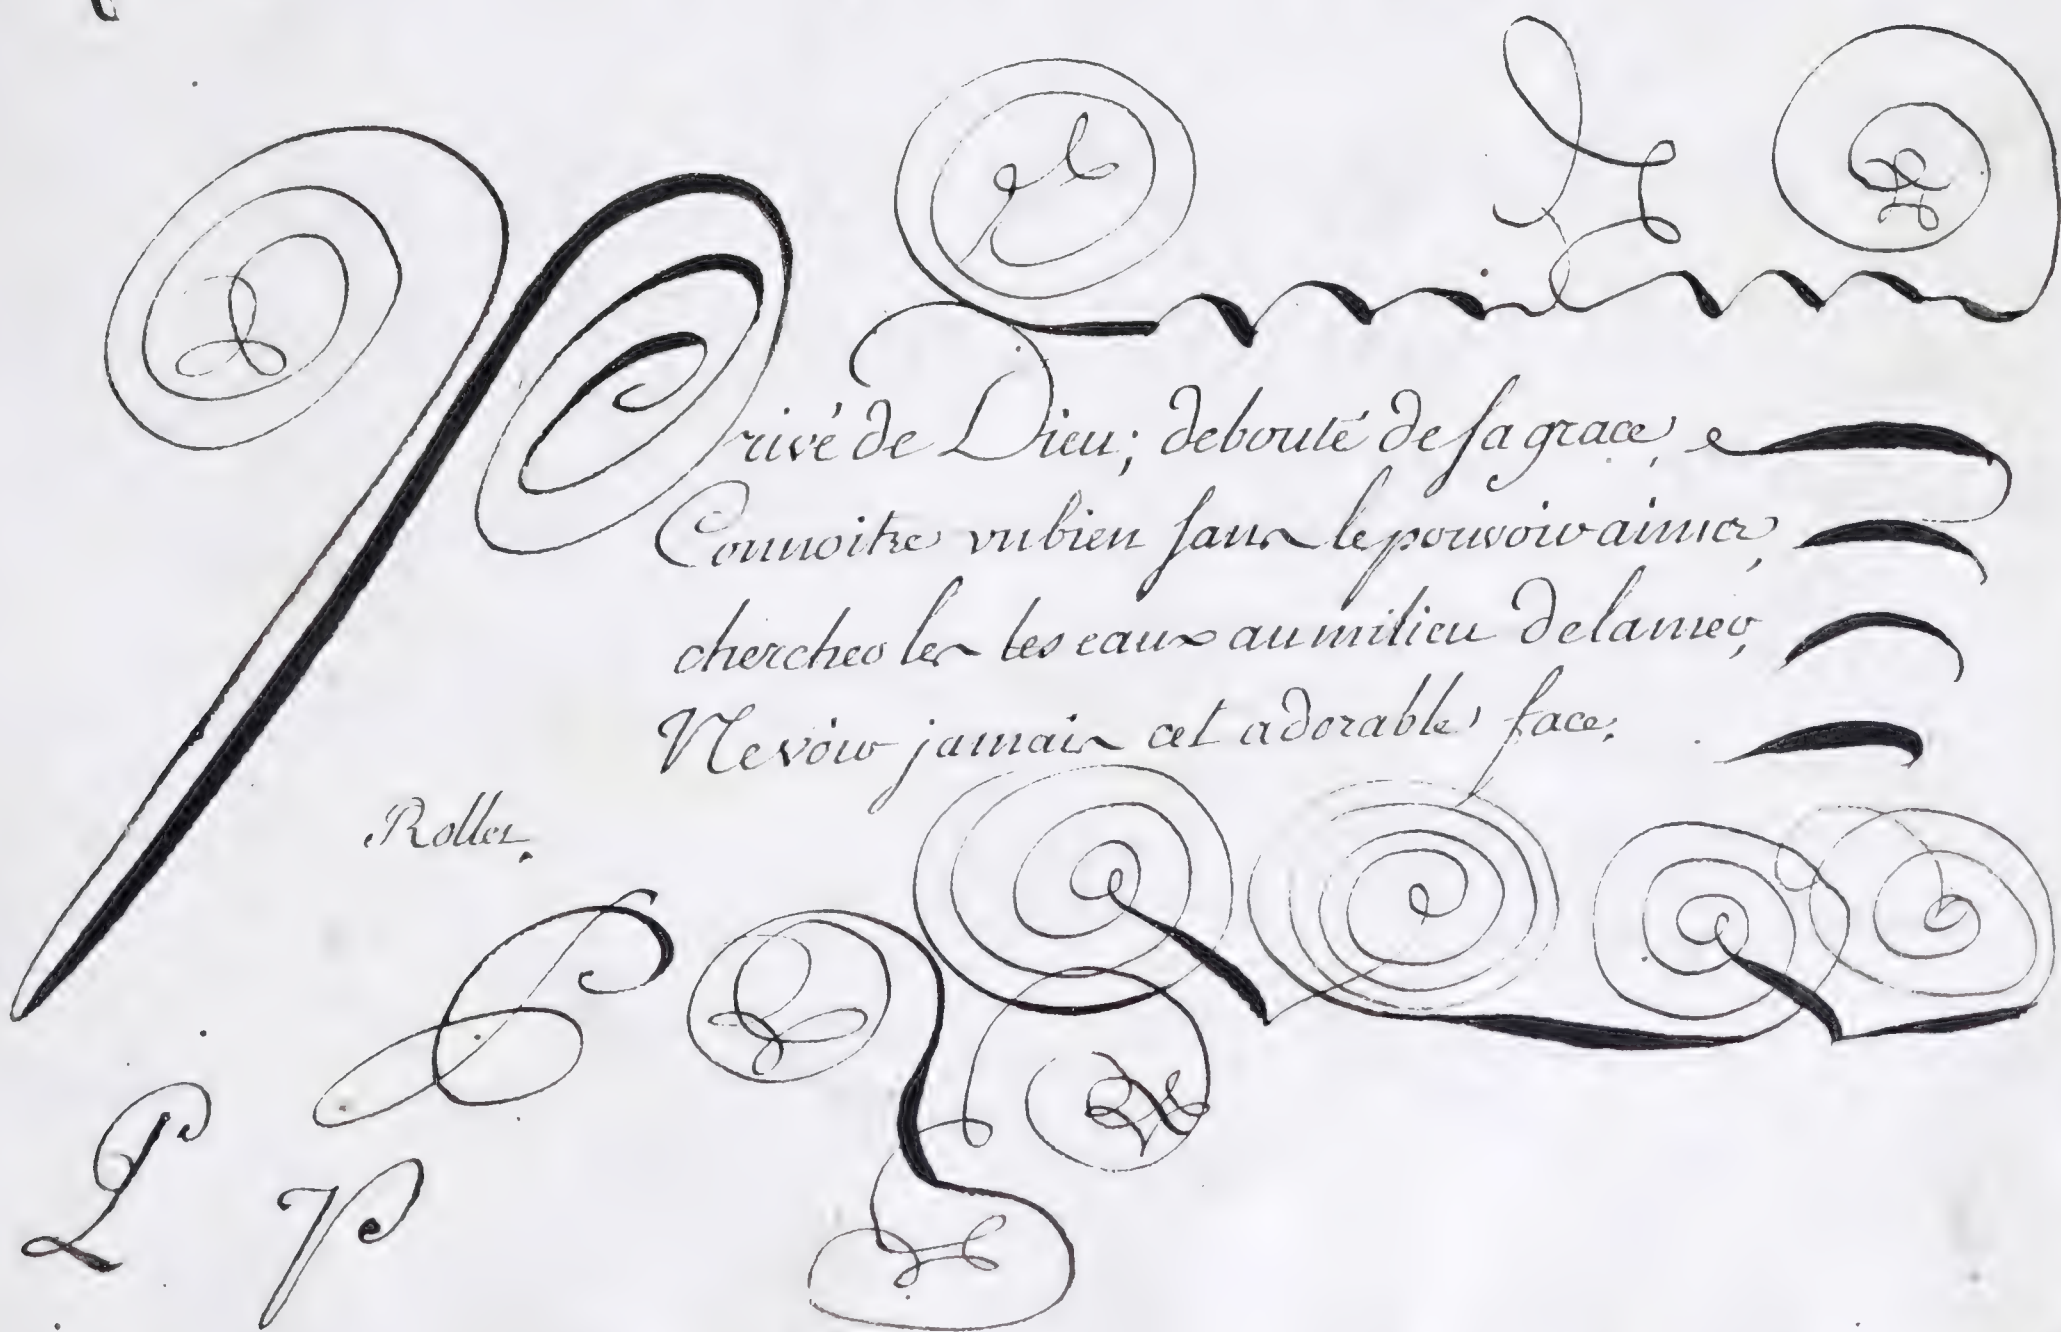 Privé de Dieu; debouté de sa grace,
Connoitre vn bien sans le pouvoir aimer,
chercher les les eaux au milieu de la mer,
Ne voir jamais cet adorable face.
Rollet.
P
P P